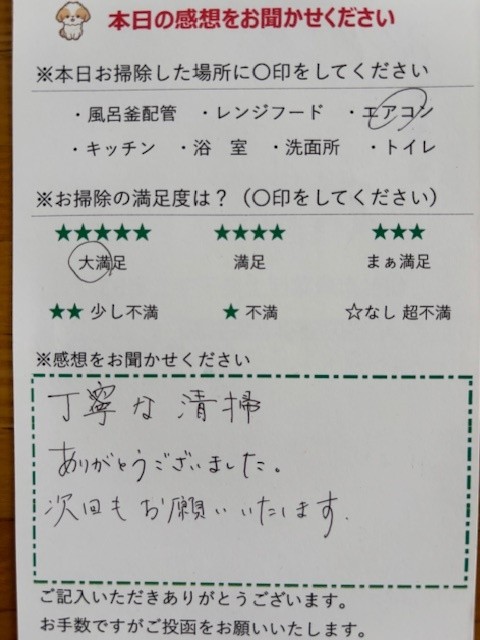 本日の感想をお聞かせください
※本日お掃除した場所に〇印をしてください
・風呂釜配管 ・レンジフード ・エアコン
・キッチン ・浴 室 ・洗面所 ・トイレ
※お掃除の満足度は？（〇印をしてください）
★★★★★ ★★★★ ★★★
大満足 満足 まぁ満足
★★ 少し不満 ★ 不満 ☆なし 超不満
※感想をお聞かせください
丁寧な清掃
ありがとうございました。
次回もお願いいたします.
ご記入いただきありがとうございます。
お手数ですがご投函をお願いいたします。